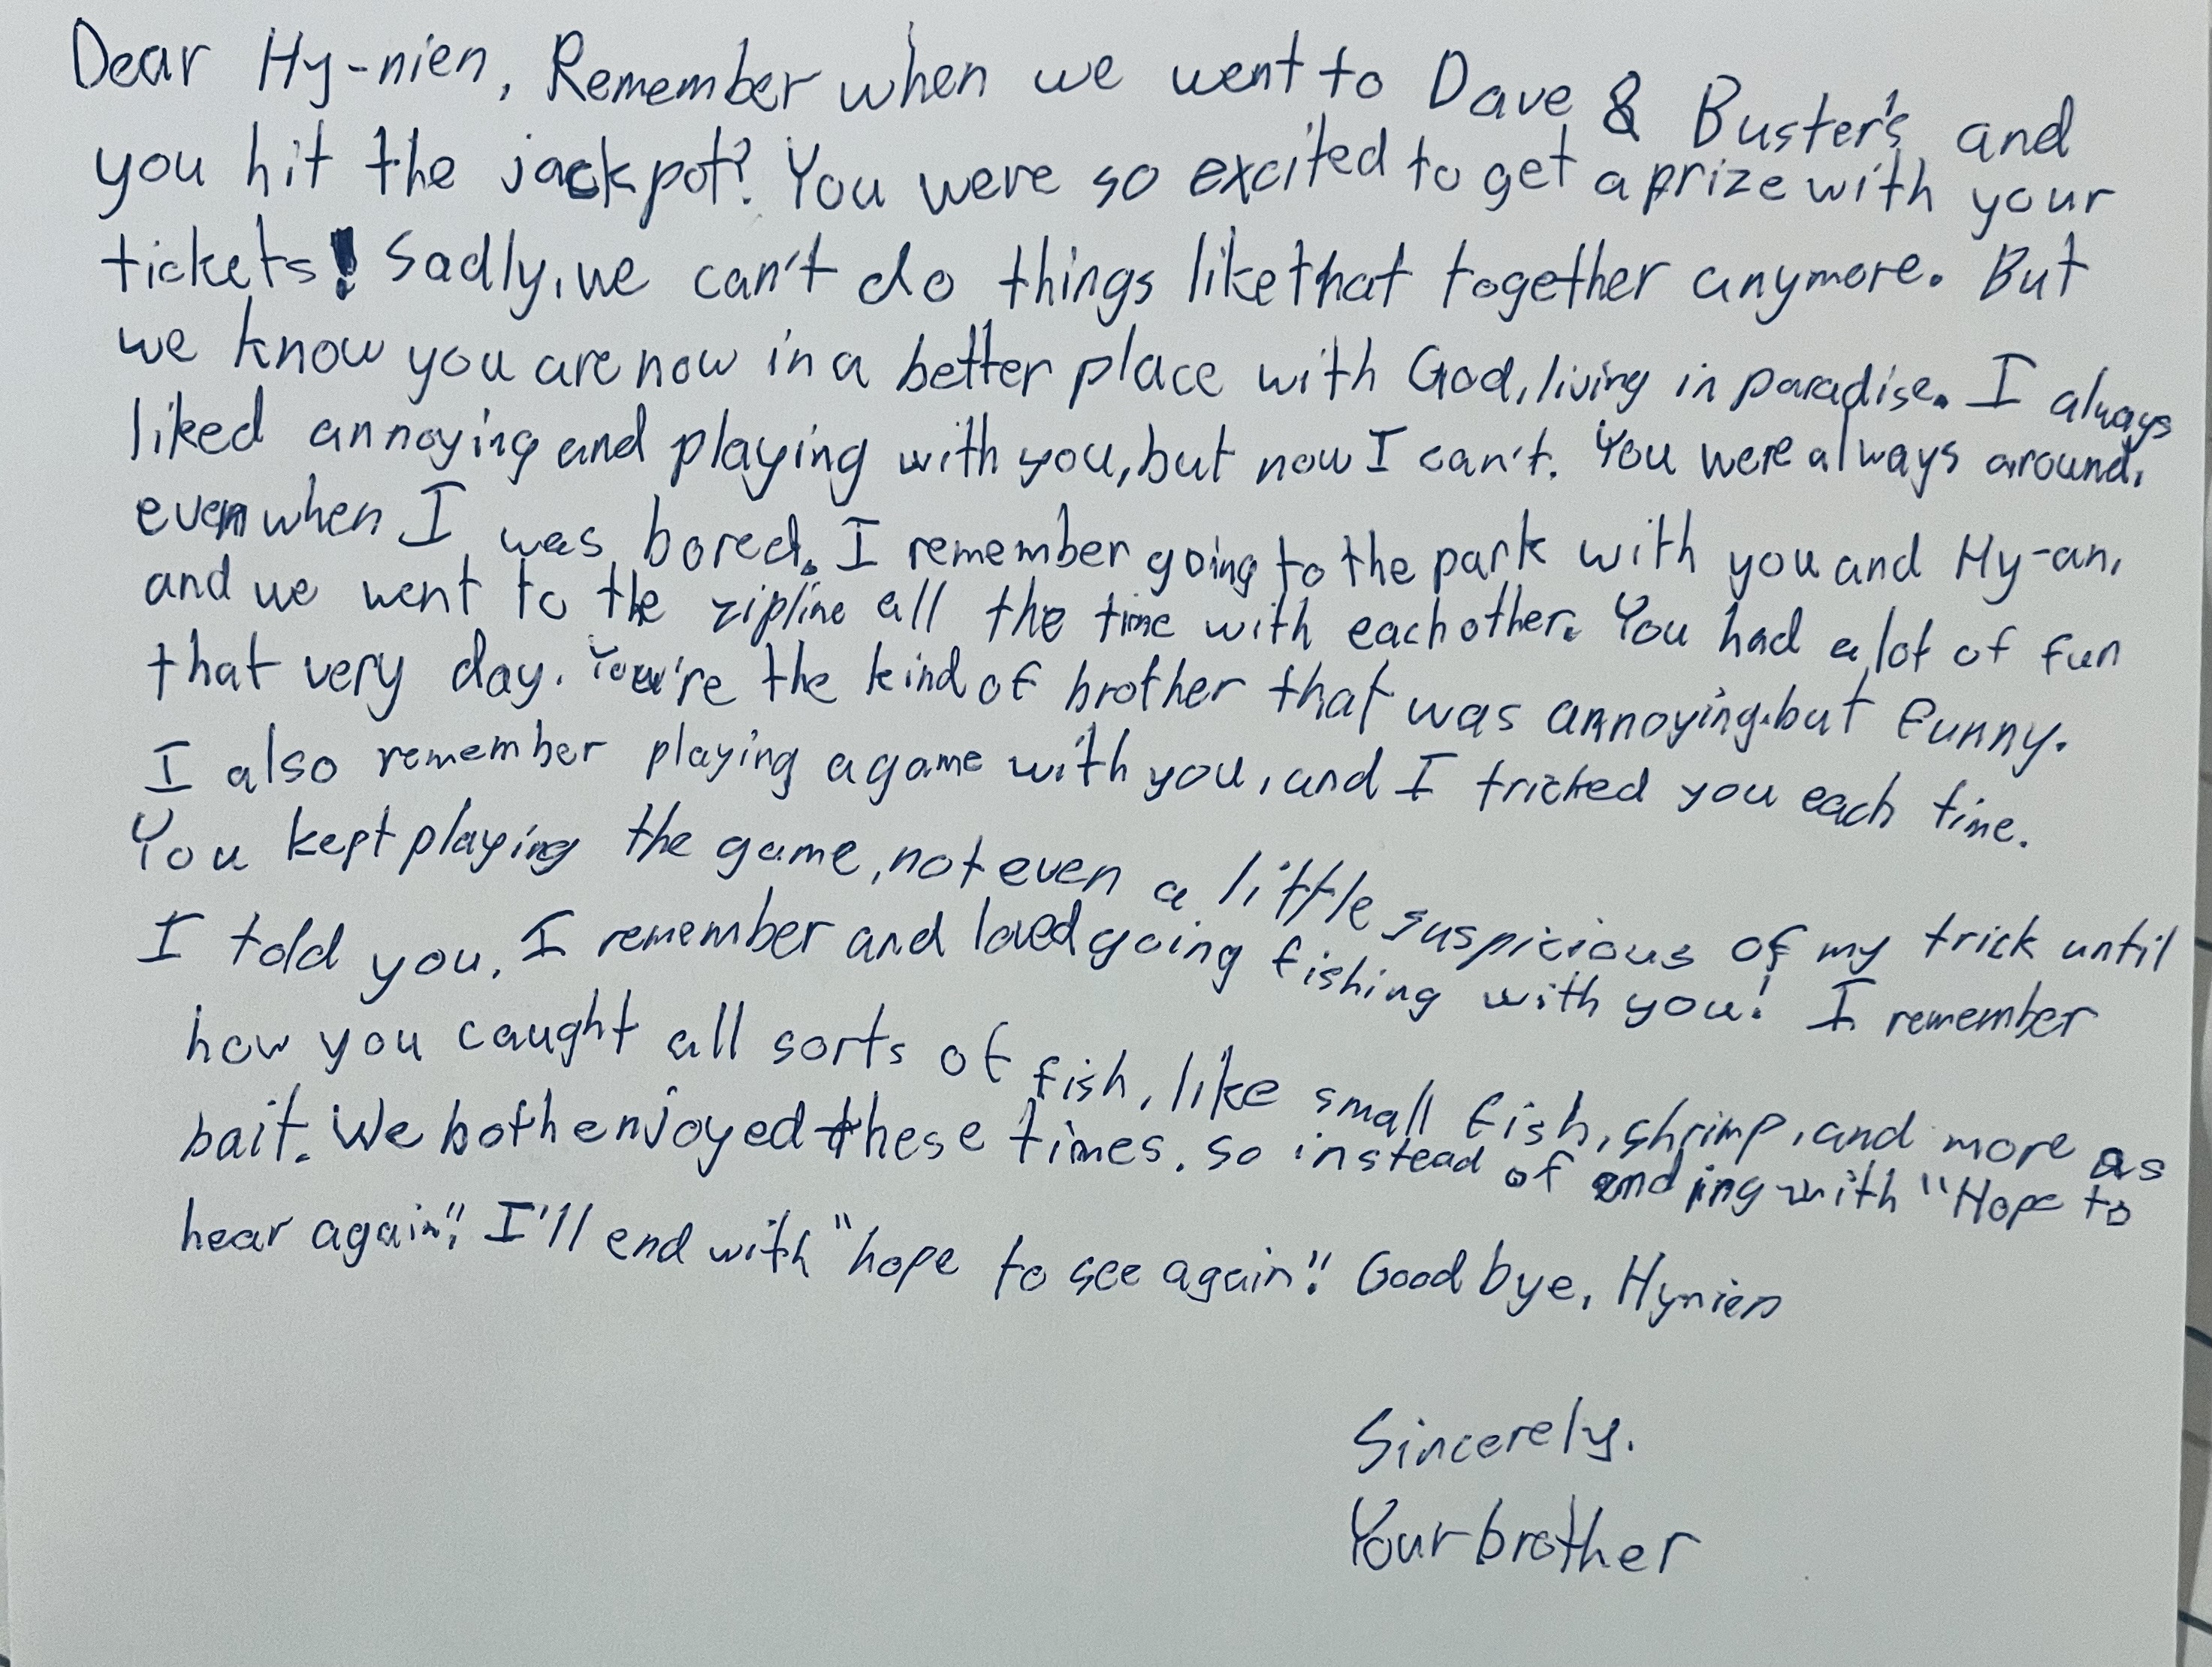 Dear Hy-nien, Remember when we went to Dave & Buster's and
you hit the jackpot? You were so excited to get a prize with your
tickets! Sadly, we can't do things like that together anymore. But
we know you are now in a better place with God, living in paradise. I always
liked annoying and playing with you, but now I can't. You were always around,
even when I was bored. I remember going to the park with you and Hy-an,
and we went to the zipline all the time with each other. You had a lot of fun
that very day. You're the kind of brother that was annoying but funny.
I also remember playing a game with you, and I tricked you each time.
You kept playing the game, not even a little suspicious of my trick until
I told you. I remember and loved going fishing with you! I remember
how you caught all sorts of fish, like small fish, shrimp, and more as
bait. We both enjoyed these times. so instead of ending with "Hope to
hear again", I'll end with "hope to see again". Good bye, Hynien
Sincerely,
Your brother